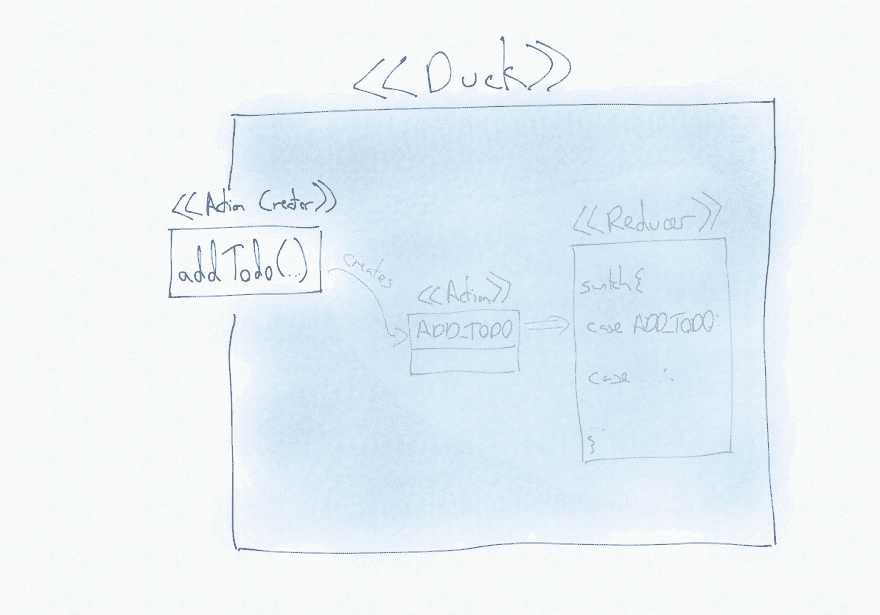 <<Duck>>
<<Action Creator>>
addTodo(...)
creates
<<Action>>
ADD_TODO
<<Reducer>>
switch{
case ADD_TODO:
case ...:
...
}